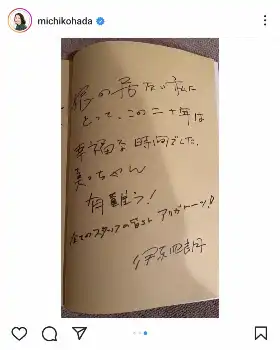 michikohada
娘の居ない私に
とって、この二十年は
幸福な時間でした。
美っちゃん
有難う!
全てのスタッフの皆さん アリガトーン!
伊東四朗